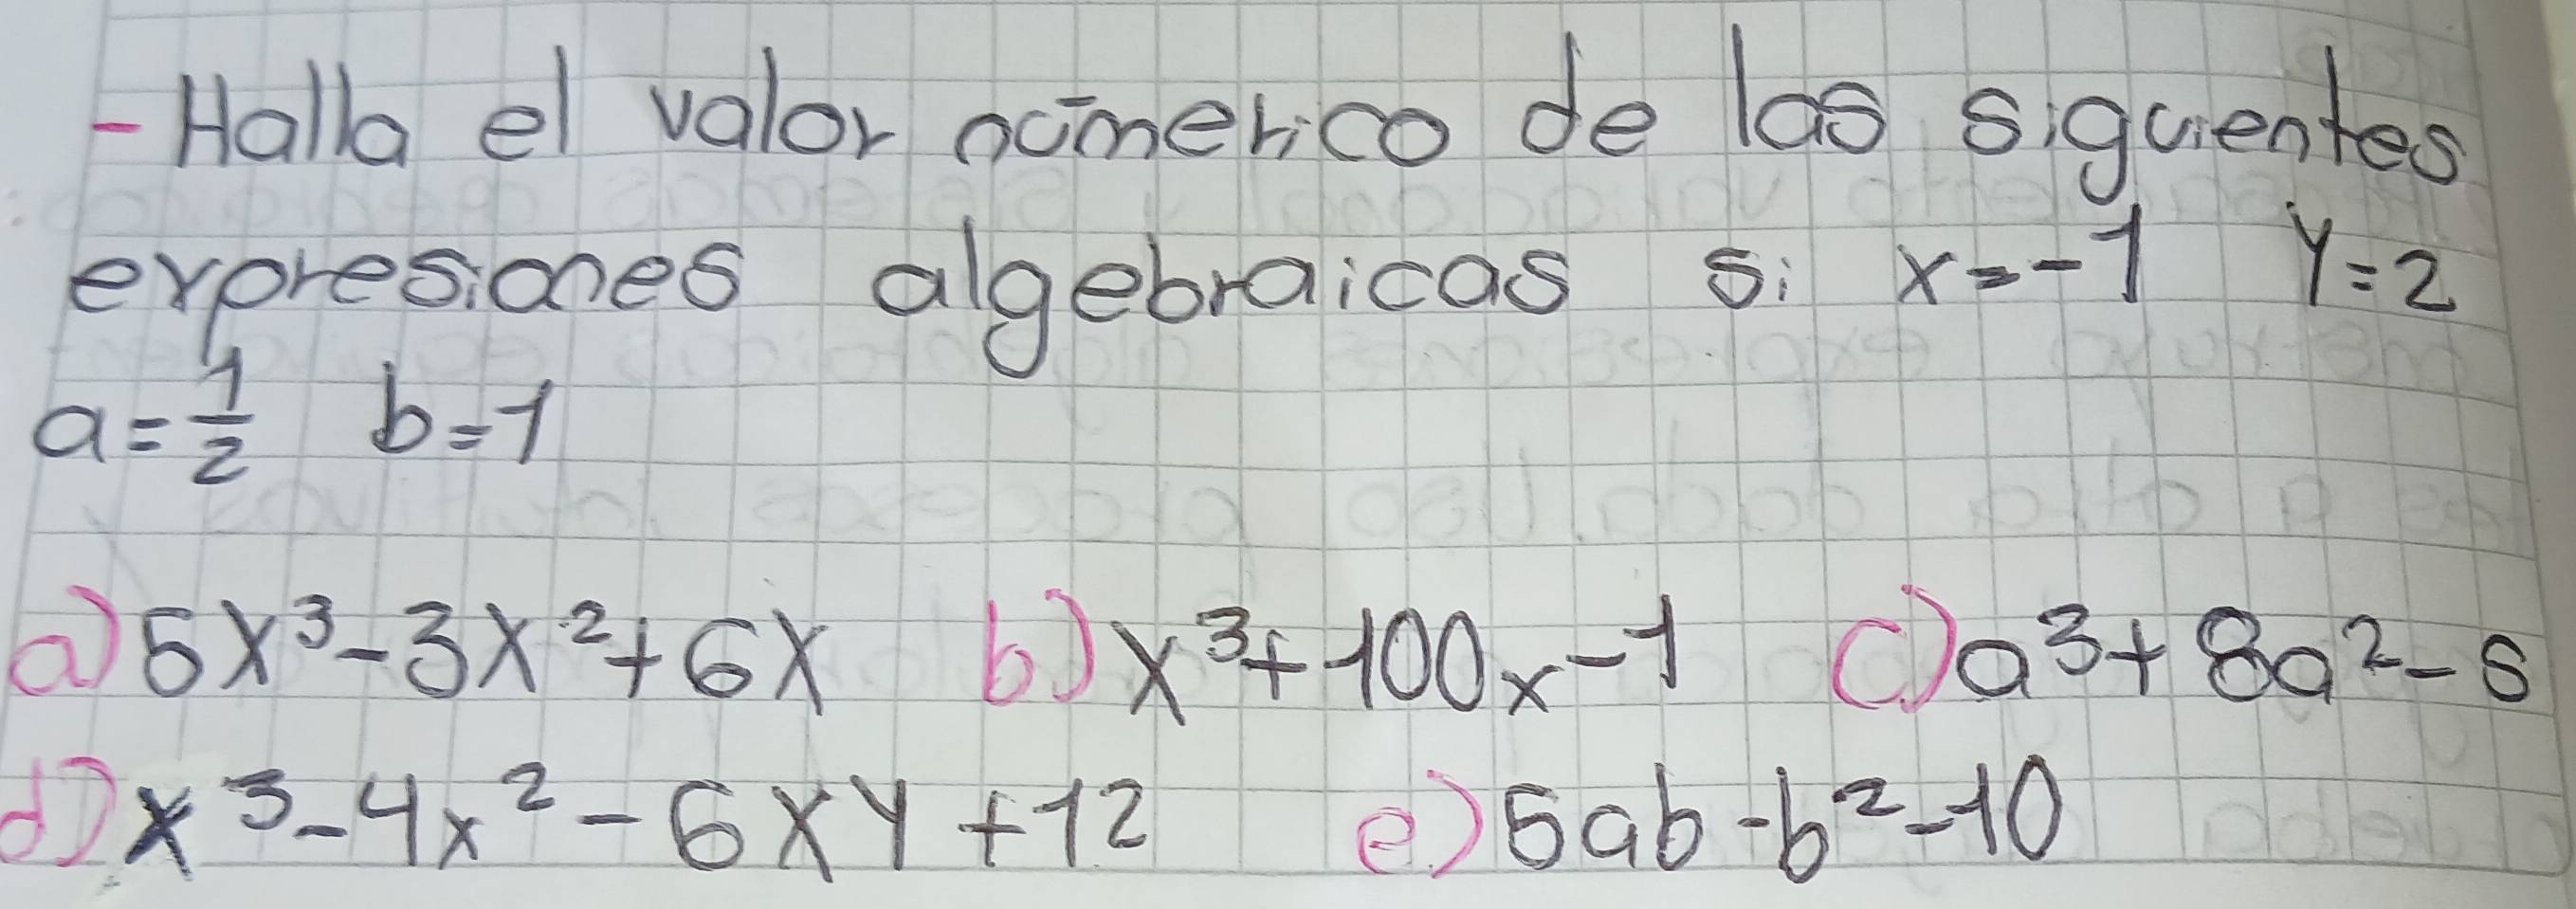 - Halla el valor númerico de las siguientes
expresiones algebraicas si x=-1 y=2
a=1/2 b=1
a) 5x³-3x²+6x b) x³+100x-1 c) a³+8a²-5
d) x³-4x²-6xy+12 e) 5ab-b²-10